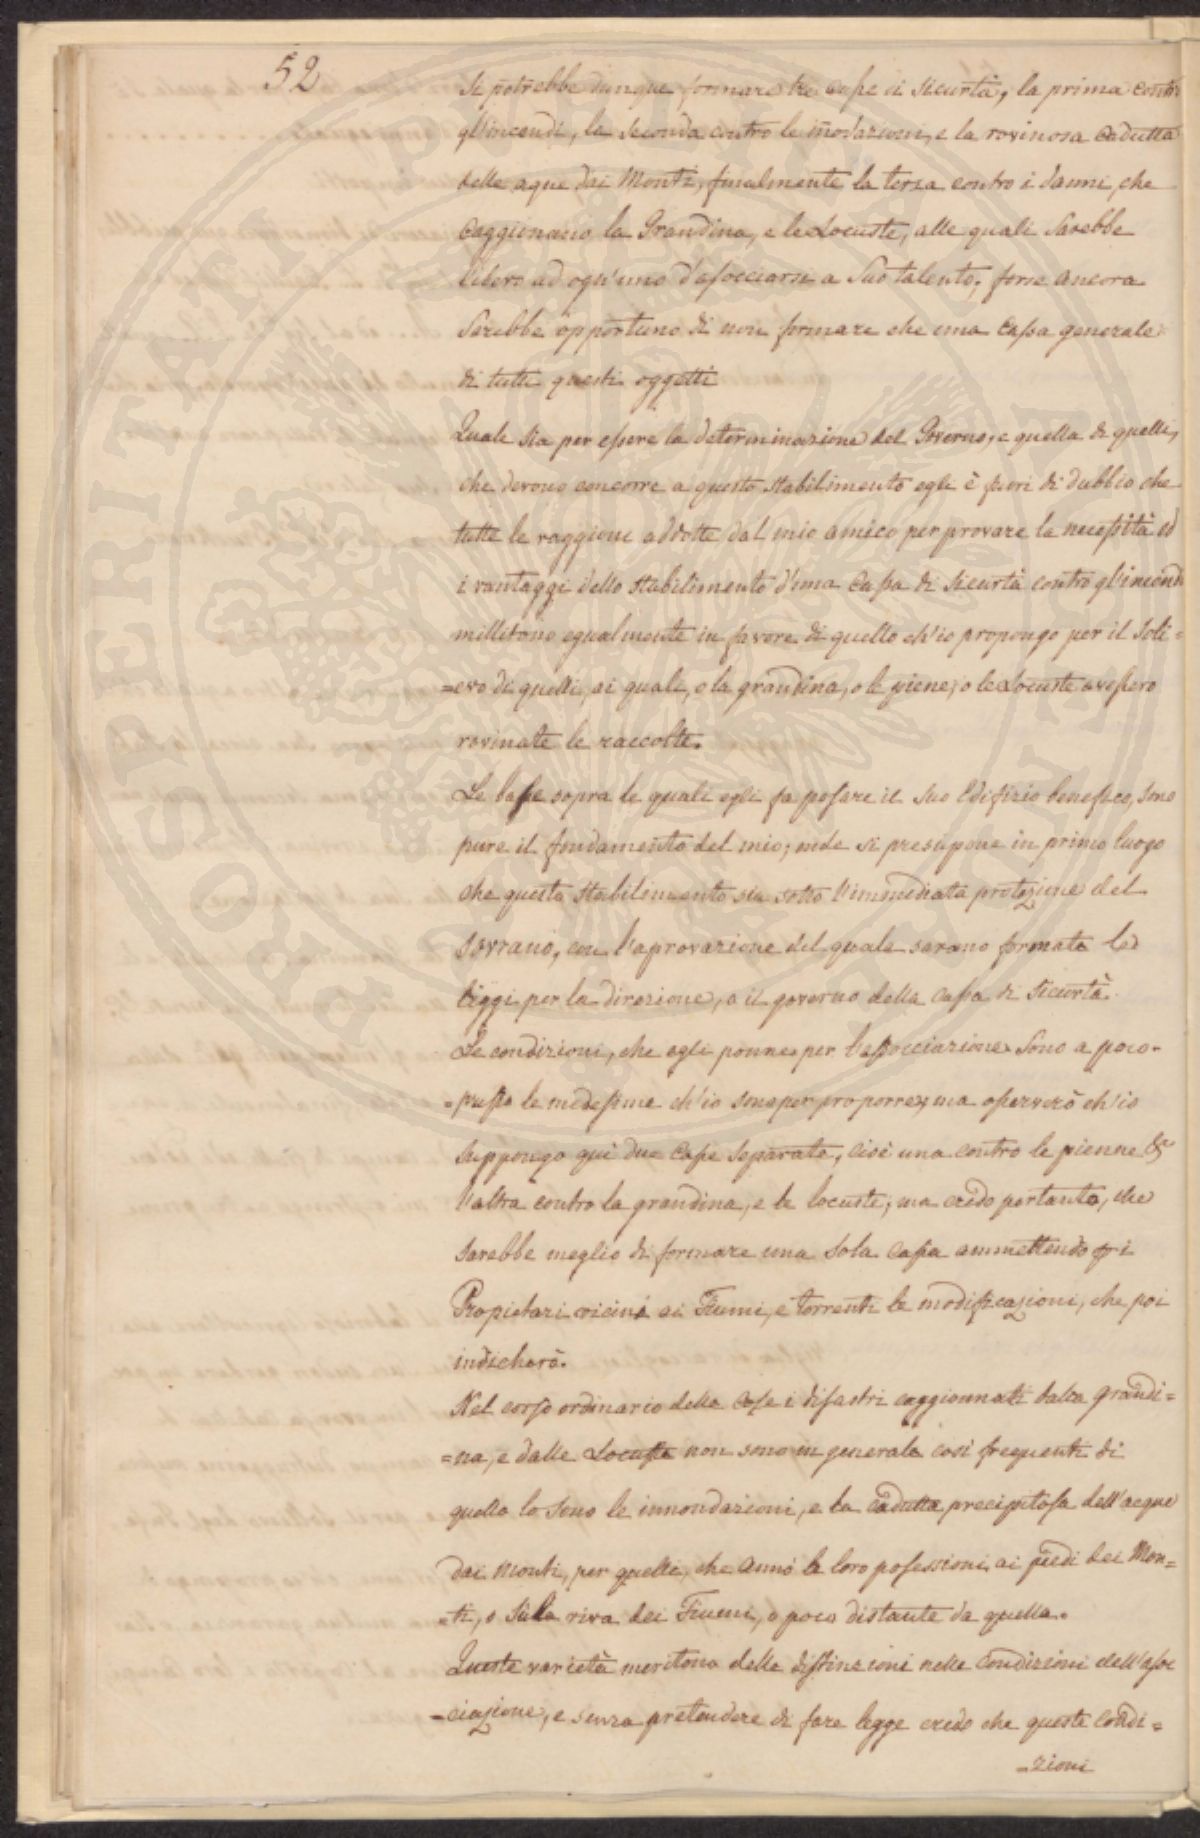 52
Si potrebbe dunque formare tre Casse di Sicurtà, la prima contro
gl'incendi, la seconda contro le inodazioni, e la rovinosa Cadutta
delle aque dai Monti, finalmente la terza contro i danni, che
Caggionano la Grandina, e le Locuste, alle quali Sarebbe
libero ad ogn'uno d'associarsi a Suo talento, forse ancora
Sarebbe opportuno di non formare che una Cassa generale
di tutti questi oggetti
Quale sia per essere la determinazione del Governo, e quella di quelli,
che devono concorre a questo stabilimento egli è fuori di dubbio che
tutte le raggioni addotte dal mio amico per provare la necessità ed
i vantaggi dello stabilimento d'una Cassa di Sicurtà contro gl'incendi
millitono egualmente in favore di quello ch'io propongo per il soli=
=evo di quelli, ai quali, o la grandina, o le piene, o le Locuste avessero
rovinate le raccolte.
Le basse sopra le quali egli fa posare il suo Edifizio benefico, sono
pure il fondamento del mio; onde si presupone in primo luogo
che questo stabilimento sia sotto l'immediata protezione del
Sovrano, con l'aprovazione del quale sarano formate le
Leggi per la direzione, e il governo della Cassa di Sicurtà.
Le condizioni, che egli ponne per l'associazione Sono a poco
=presso le medesime ch'io sono per proporre, ma osserverò ch'io
Suppongo quì due Casse Separate, cioè una contro le pienne &
l'altra contro la grandina, e le locuste; ma credo pertanto, che
Sarebbe meglio di formare una Sola Cassa ammettendo p i
Propietari vicini ai Fiumi, e torrenti le modificazioni, che poi
indicherò.
Nel corso ordinario delle Cose i disastri caggionnati dalla grandi=
=na, e dalle Locuste non sono in generale così frequenti di
quello lo Sono le innondazioni, e la Cadutta precipitosa dell'acque
dai Monti, per quelli, che anno le loro possessioni ai piedi dei Mon=
=ti, o Sula riva dei Fiumi, o poco distante da quella.
Queste varietà meritono delle distinzioni nelle Condizioni dell'asso
=ciazione, e senza pretendere di fare legge credo che queste Condi=
=zioni
PROSPERITATI PUBLICAE